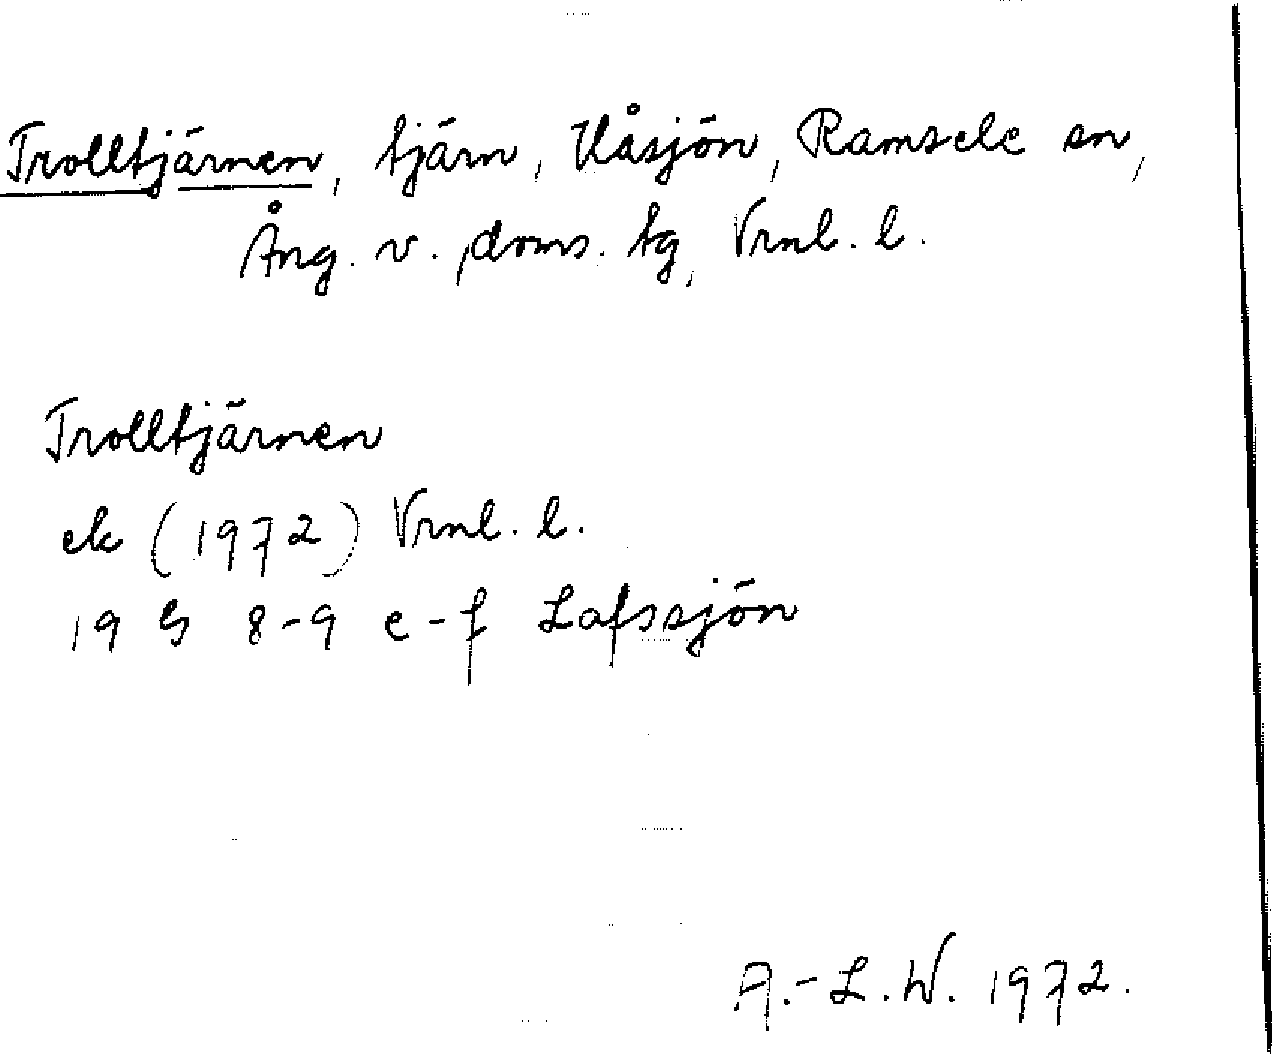 Trolltjärnen, tjärn, Våsjön, Ramsele sn,
Ång. v. doms. tg, Vrnl. l.
Trolltjärnen
ek (1972) Vrnl. l.
19 G 8-9 e-f Lafssjön
A.-L.W. 1972.